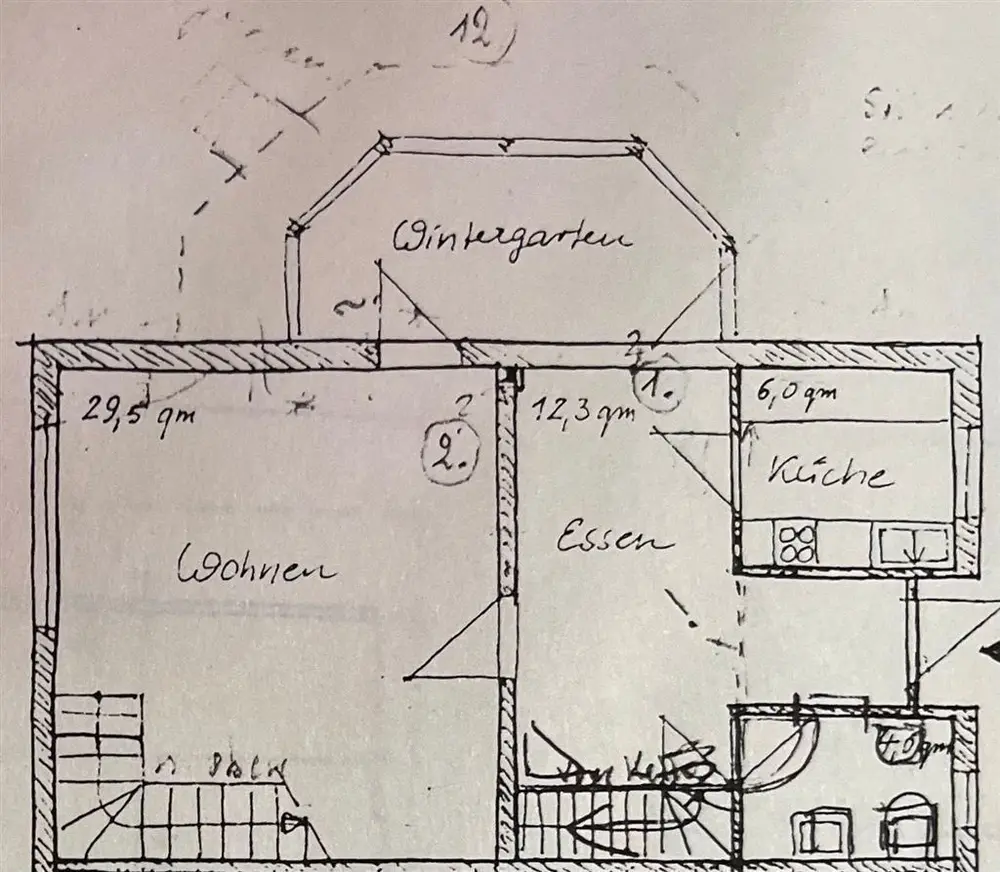 12)
Wintergarten
2
29,5 qm
2
2.
12,3 qm
1.
6,0 qm
Küche
Essen
Wohnen
4,0 qm